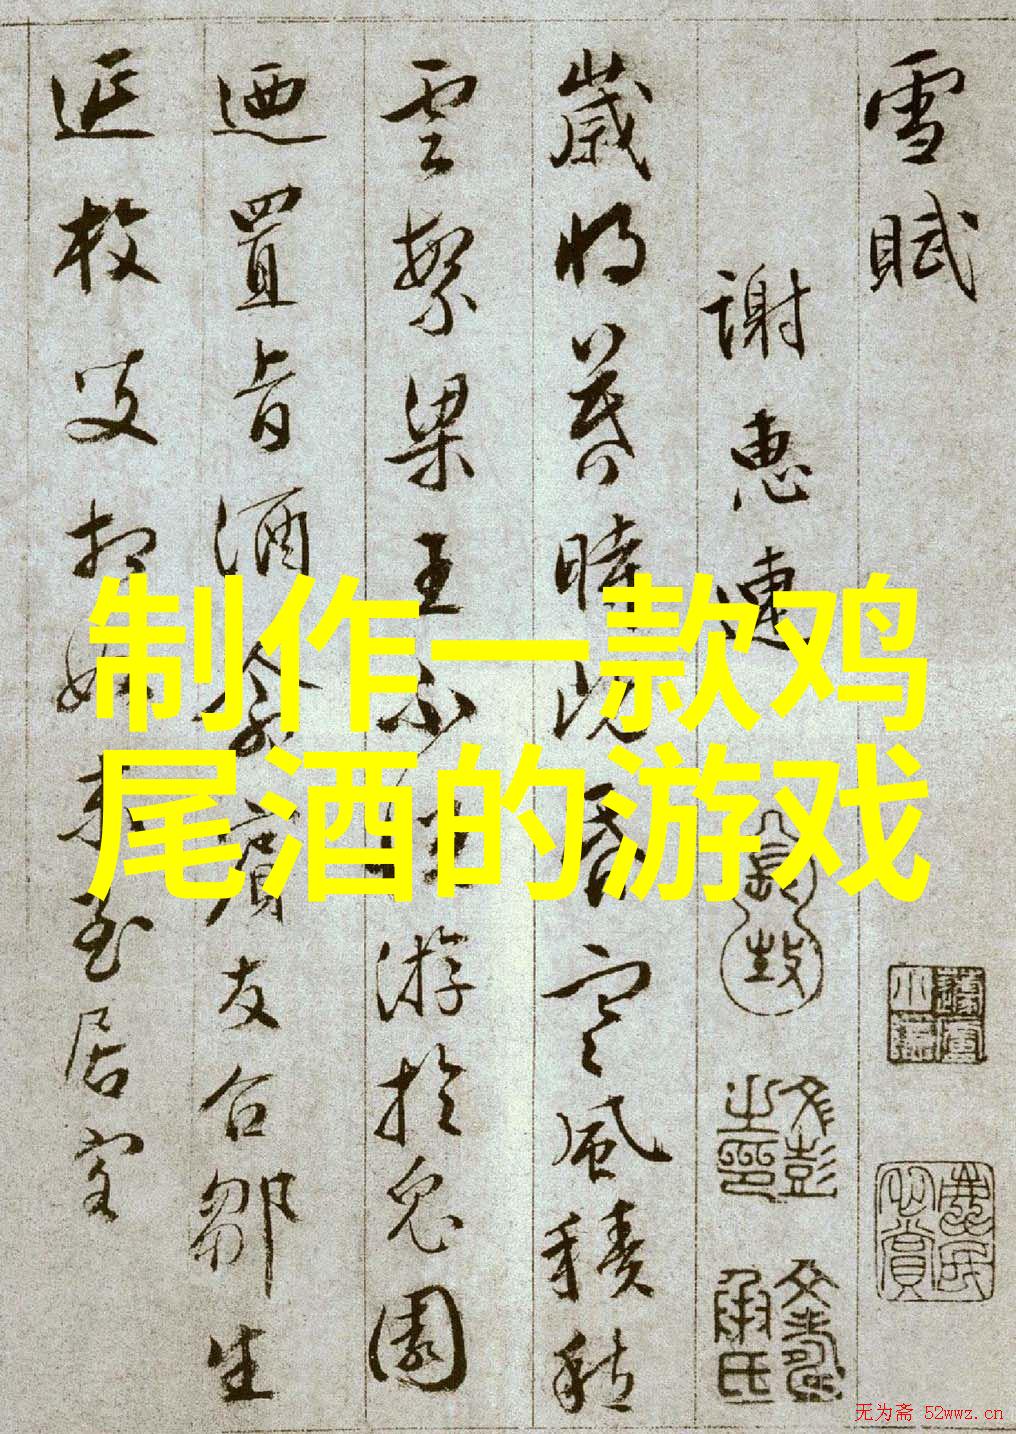 雪賦
謝惠連
歲將暮時既昏寒風積愁
雲繁梁王不悅游於兔園
迺置旨酒命賓友召鄒生
延枚叟相如末至居客
制作一款鸡
尾酒的游戏
文彭
之印
无为斋 52wwz.cn